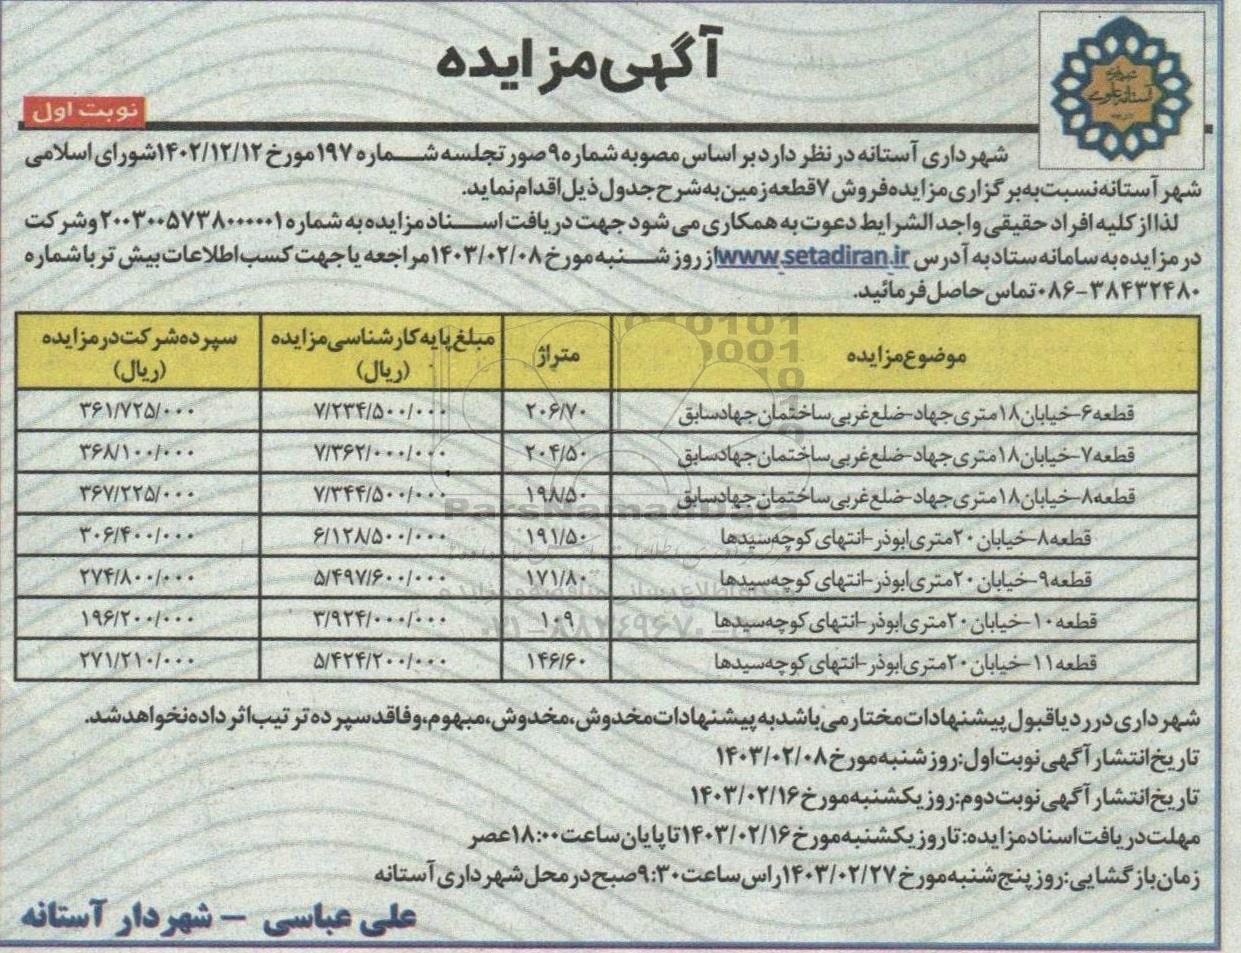 آگهی مزایده
نوبت اول
شهرداری آستانه در نظر دارد بر اساس مصوبه شماره ۹ صورتجلسه شماره ۱۹۷ مورخ ۱۴۰۲/۱۲/۱۲ شورای اسلامی
شهر آستانه نسبت به برگزاری مزایده فروش ۷ قطعه زمین به شرح جدول ذیل اقدام نماید.
لذا از کلیه افراد حقیقی واجد الشرایط دعوت به همکاری می شود جهت دریافت اسناد مزایده به شماره ۲۰۰۳۰۰۵۷۳۸۰۰۰۰۰۱ و شرکت
در مزایده به سامانه ستاد به آدرس www.setadiran.ir از روز شنبه مورخ ۱۴۰۳/۰۲/۰۸ مراجعه یا جهت کسب اطلاعات بیش تر با شماره
۰۸۶-۳۸۴۳۲۴۸۰ تماس حاصل فرمائید.
موضوع مزایده | متراژ | مبلغ پایه کارشناسی مزایده (ریال) | سپرده شرکت در مزایده (ریال)
قطعه ۶-خیابان ۱۸ متری جهاد-ضلع غربی ساختمان جهاد سابق | ۲۰۶/۷۰ | ۷/۲۳۴/۵۰۰/۰۰۰ | ۳۶۱/۷۲۵/۰۰۰
قطعه ۷-خیابان ۱۸ متری جهاد-ضلع غربی ساختمان جهاد سابق | ۲۰۴/۵۰ | ۷/۳۶۲/۰۰۰/۰۰۰ | ۳۶۸/۱۰۰/۰۰۰
قطعه ۸-خیابان ۱۸ متری جهاد-ضلع غربی ساختمان جهاد سابق | ۱۹۸/۵۰ | ۷/۳۴۴/۵۰۰/۰۰۰ | ۳۶۷/۲۲۵/۰۰۰
قطعه ۸-خیابان ۲۰ متری ابوذر-انتهای کوچه سیدها | ۱۹۱/۵۰ | ۶/۱۲۸/۵۰۰/۰۰۰ | ۳۰۶/۴۰۰/۰۰۰
قطعه ۹-خیابان ۲۰ متری ابوذر-انتهای کوچه سیدها | ۱۷۱/۸۰ | ۵/۴۹۷/۶۰۰/۰۰۰ | ۲۷۴/۸۰۰/۰۰۰
قطعه ۱۰-خیابان ۲۰ متری ابوذر-انتهای کوچه سیدها | ۱۰۹ | ۳/۹۲۴/۰۰۰/۰۰۰ | ۱۹۶/۲۰۰/۰۰۰
قطعه ۱۱-خیابان ۲۰ متری ابوذر-انتهای کوچه سیدها | ۱۴۶/۶۰ | ۵/۴۲۴/۲۰۰/۰۰۰ | ۲۷۱/۲۱۰/۰۰۰
ParsNamadData
شهرداری در رد یا قبول پیشنهادات مختار می باشد به پیشنهادات مخدوش، مخدوش، مبهوم، و فاقد سپرده ترتیب اثر داده نخواهد شد.
تاریخ انتشار آگهی نوبت اول: روز شنبه مورخ ۱۴۰۳/۰۲/۰۸
تاریخ انتشار آگهی نوبت دوم: روز یکشنبه مورخ ۱۴۰۳/۰۲/۱۶
مهلت دریافت اسناد مزایده: تا روز یکشنبه مورخ ۱۴۰۳/۰۲/۱۶ تا پایان ساعت ۱۸:۰۰ عصر
زمان بازگشایی: روز پنج شنبه مورخ ۱۴۰۳/۰۲/۲۷ راس ساعت ۹:۳۰ صبح در محل شهرداری آستانه
علی عباسی – شهردار آستانه